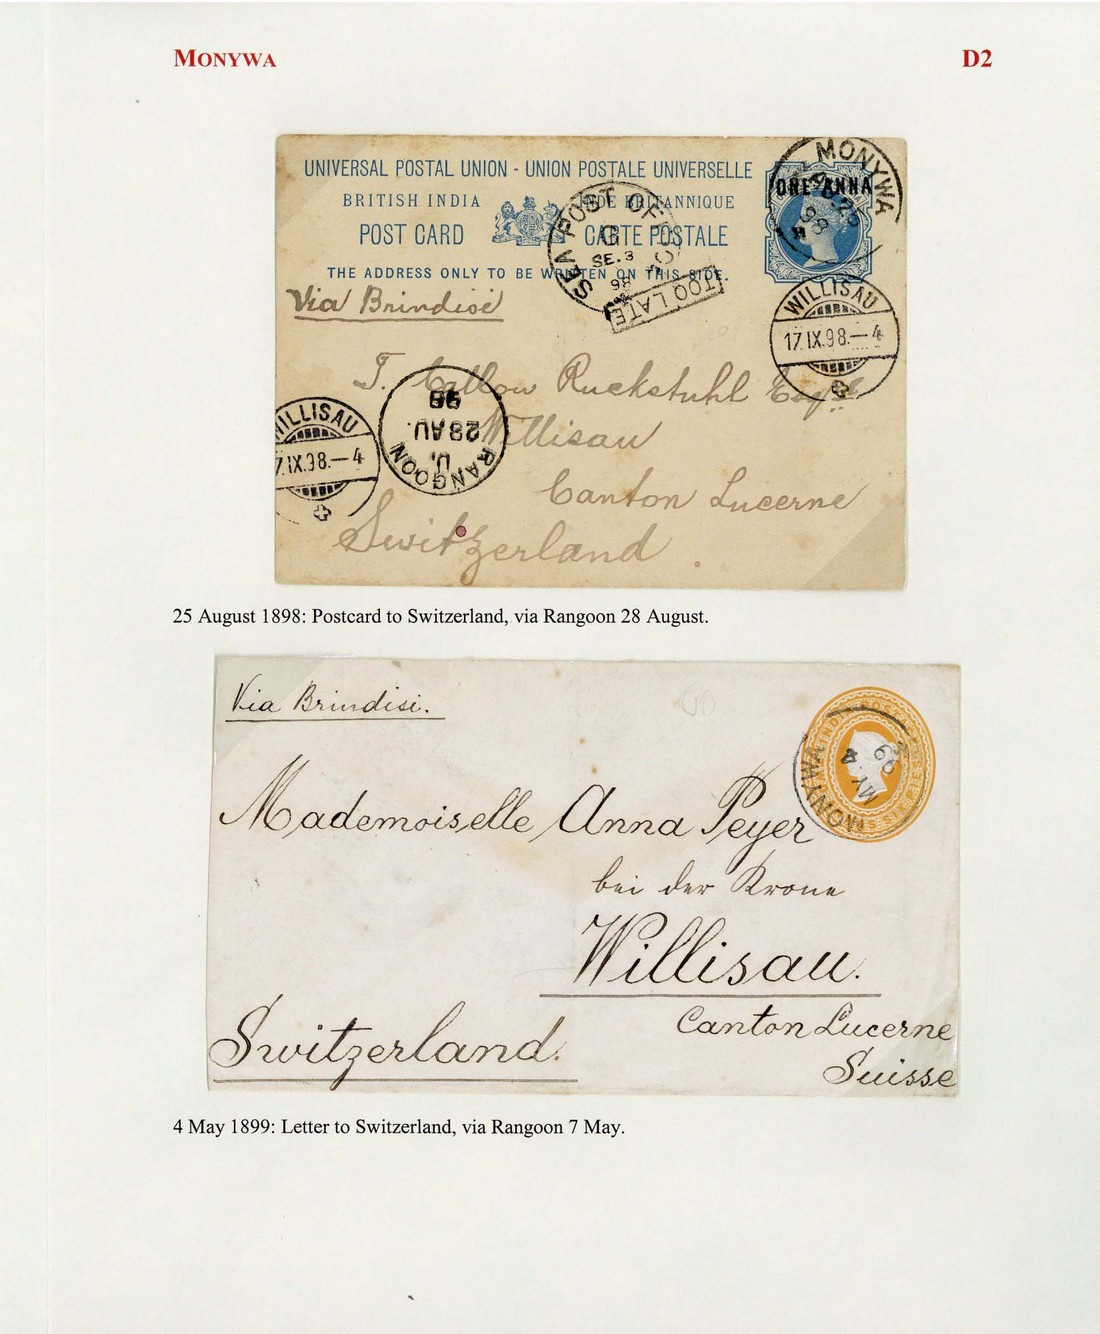 MONYWA
D2
UNIVERSAL POSTAL UNION - UNION POSTALE UNIVERSELLE
BRITISH INDIA INDE BRITANNIQUE
POST CARD CARTE POSTALE
THE ADDRESS ONLY TO BE WRITTEN ON THIS SIDE.
ONE ANNA
MONYWA
AU.25
98
SEA POST OFFICE
SE.3
98
TOO LATE
Via Brindisi
WILLISAU
17.IX.98.—4
T. Callow Ruckstuhl Esqre
Willisau
Canton Lucerne
Switzerland.
WILLISAU
7.IX.98.—4
RANGOON
U.
28 AU.
98
25 August 1898: Postcard to Switzerland, via Rangoon 28 August.
Via Brindisi.
MONYWA
MY 4
99
Mademoiselle Anna Peyer
bei der Krone
Willisau.
Canton Lucerne
Switzerland.
Suisse
4 May 1899: Letter to Switzerland, via Rangoon 7 May.